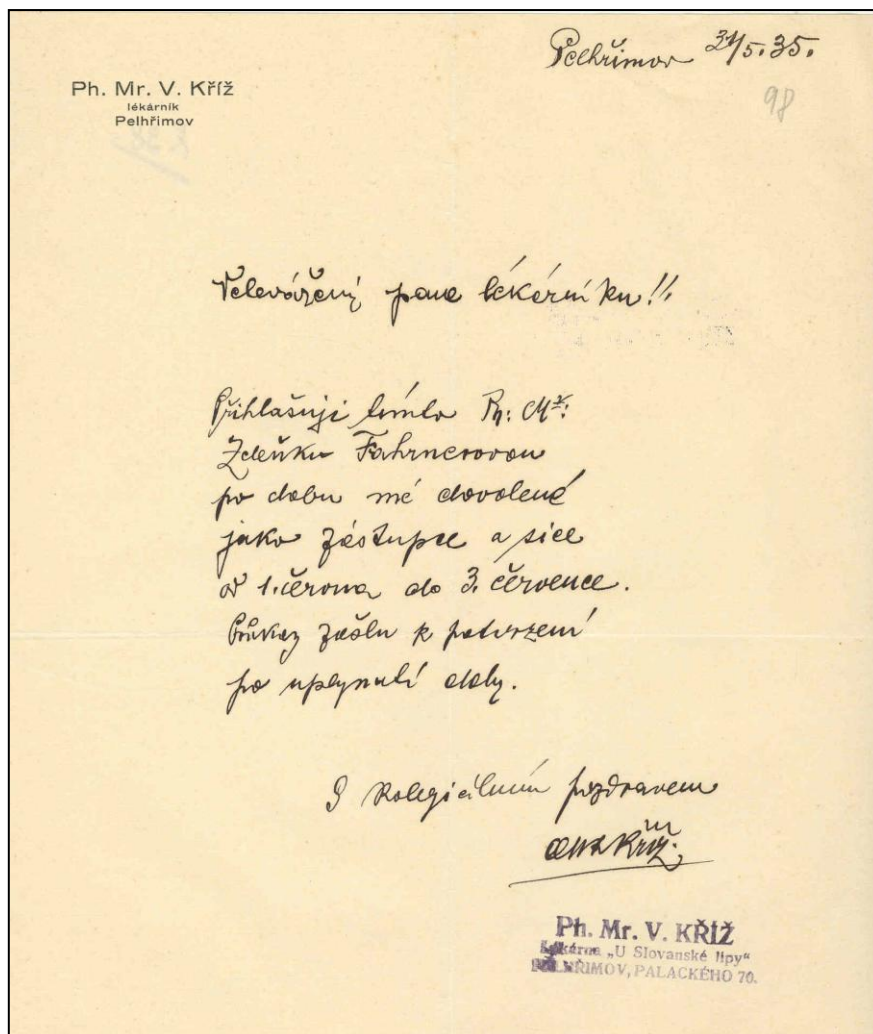 Pelhřimov 31/5.35.
98
Ph. Mr. V. Kříž
lékárník
Pelhřimov
Velevážený pane lékárníku!!
Přihlašuji tímto Ph: Mr:
Zdeňku Fahrnerovou
po dobu mé dovolené
jako zástupce a sice
od 1. června do 3. července.
Průkaz zašlu k potvrzení
po uplynutí doby.
S kolegiálním pozdravem
Kříž
Ph. Mr. V. KŘÍŽ
Lékárna „U Slovanské lípy"
PELHŘIMOV, PALACKÉHO 70.